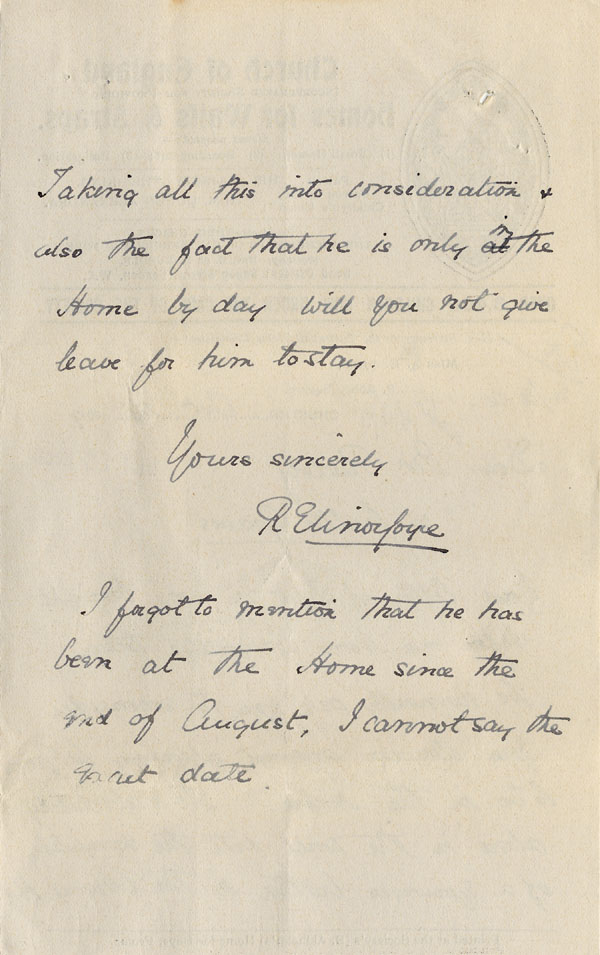 Taking all this into consideration &
also the fact that he is only in the
Home by day will you not give
leave for him to stay.
Yours sincerely
R Elinor Joye
I forgot to mention that he has
been at the Home since the
end of August, I cannot say the
exact date.